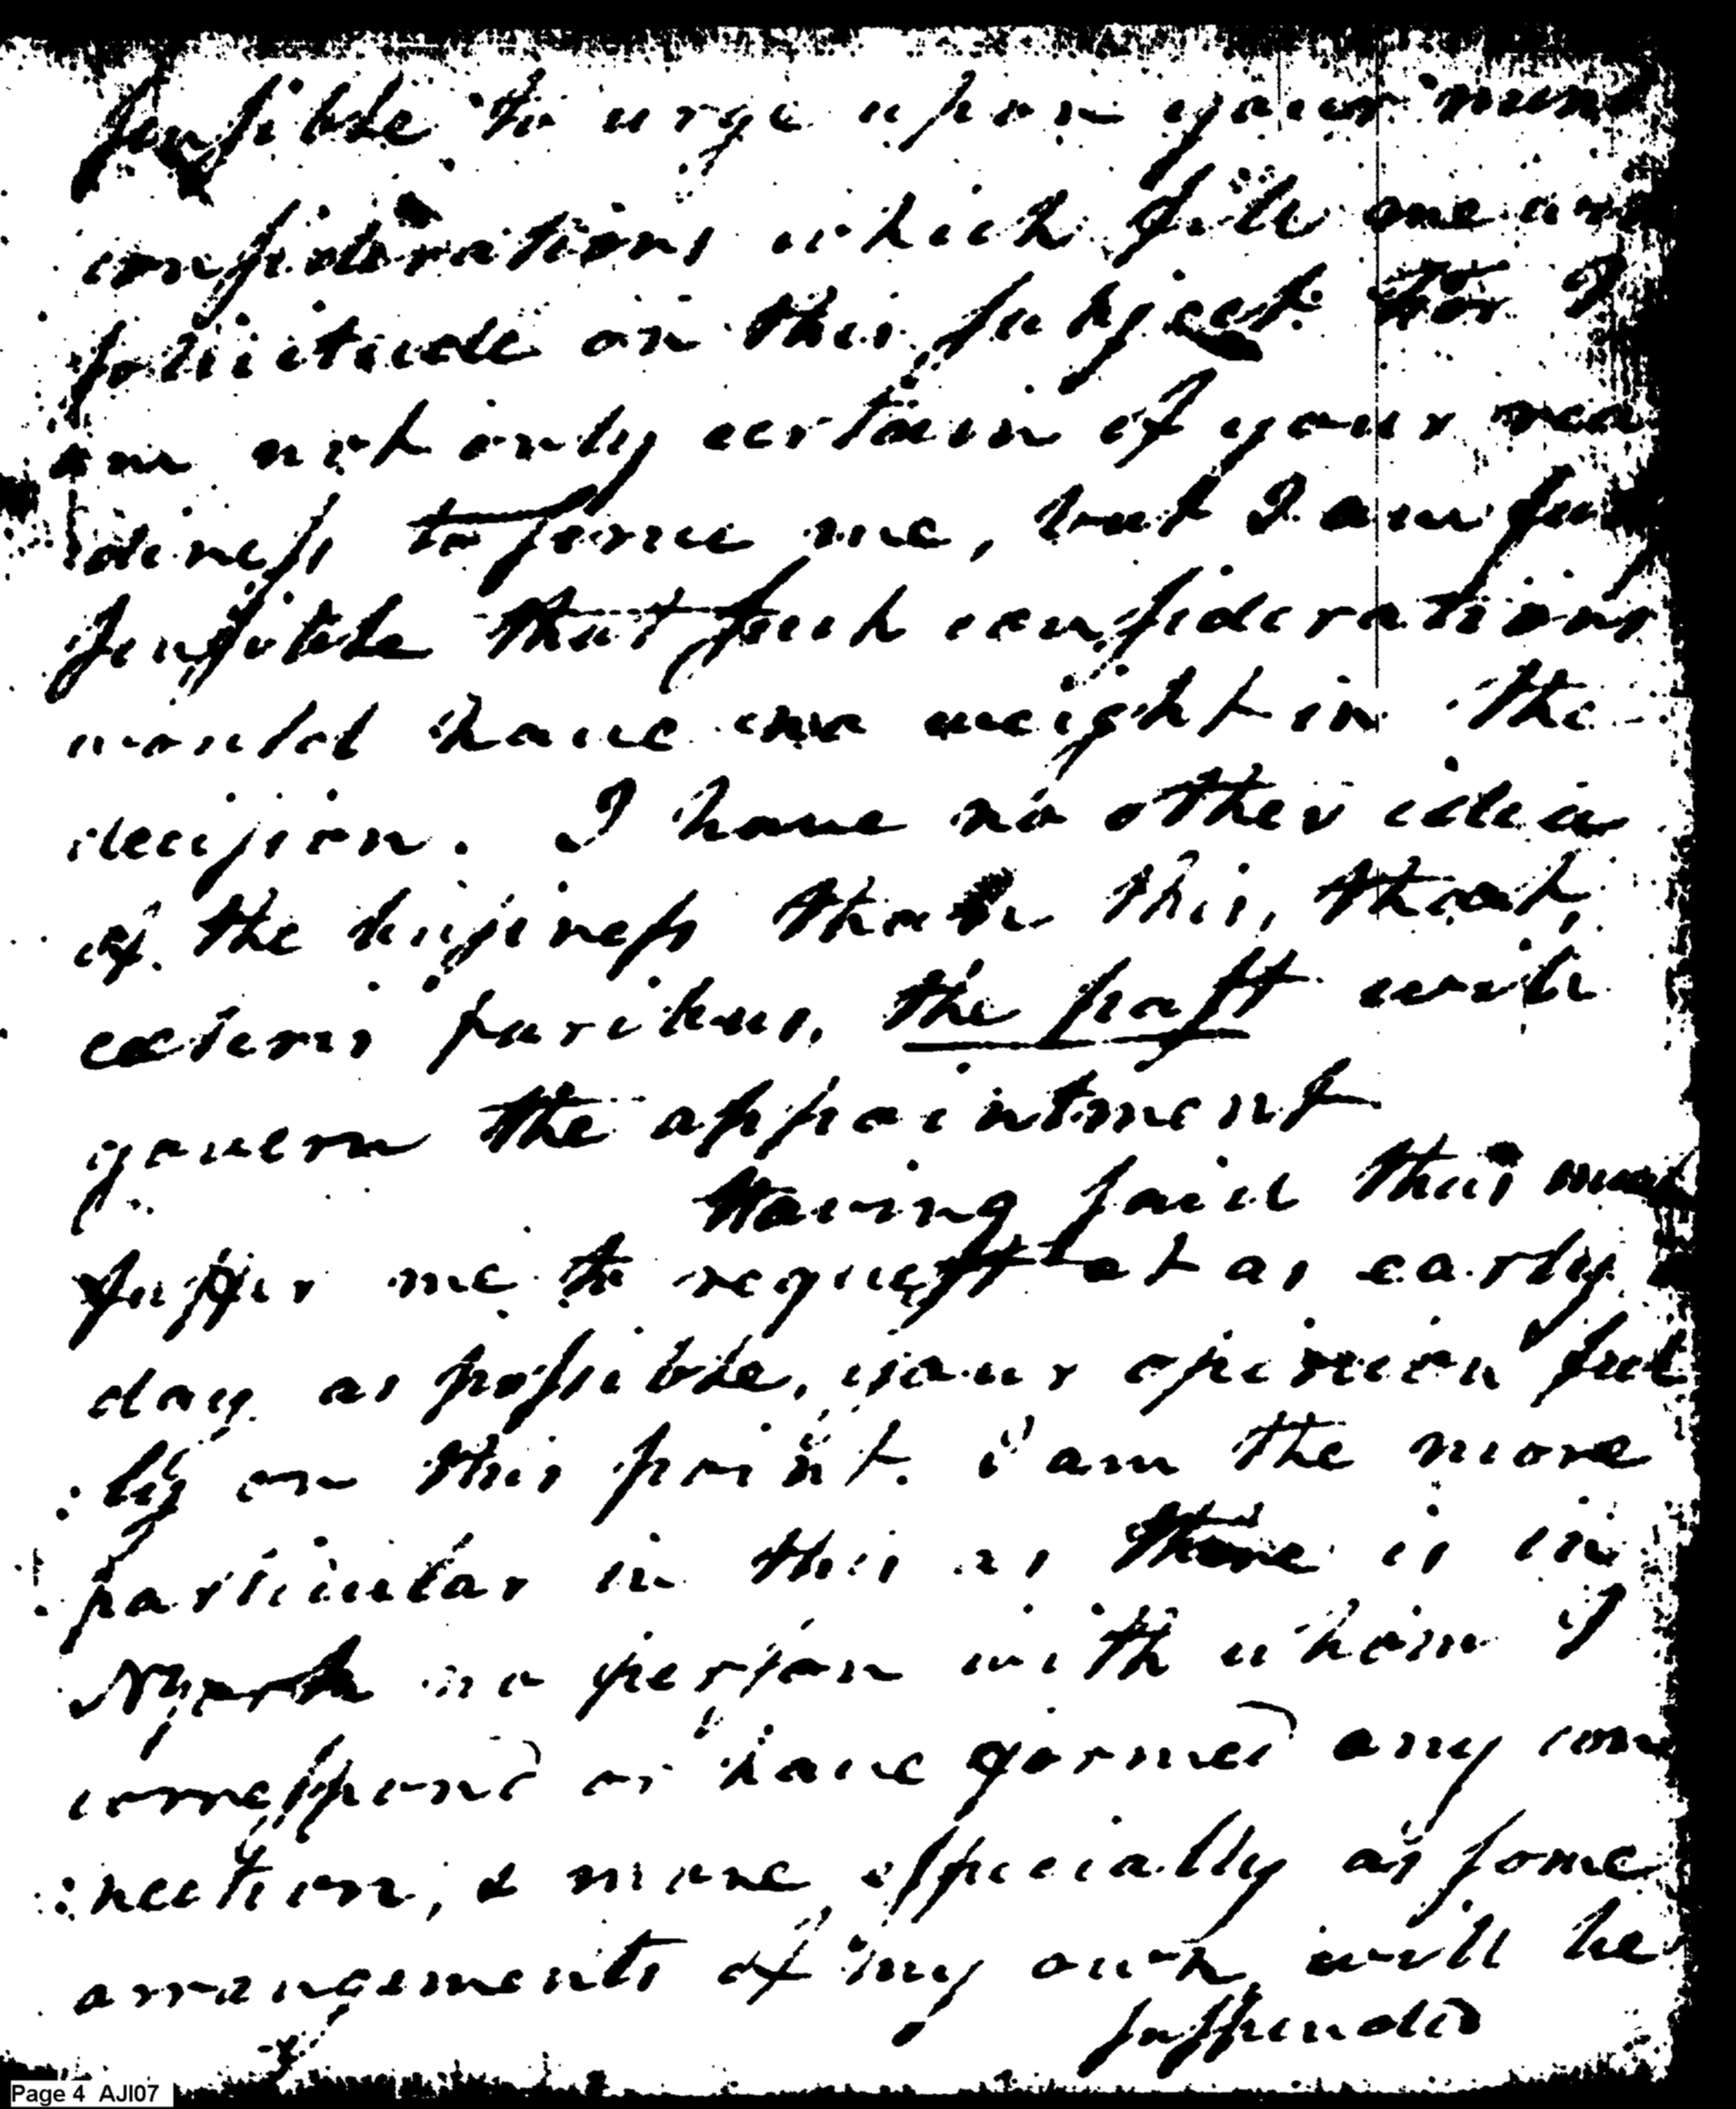 sensible to urge upon your mind
considerations which fill me with
solicitude on this subject for I
am not only certain of your rea
diness to serve me, but I am ful
sensible that such considerations
would have no weight in the
decision. I have no other idea
of the business than this, that,
cæteris paribus, the past will
govern the appointment
Having said this much
suffer me to request at as early
day as possible, your opinion ful
:ly on this point. I am the more
particular in this as there is in
no person with whom I
correspond or have formed any con
:nection, & more especially as some
arrangements of my own will be
suspended
Page 4 AJI07